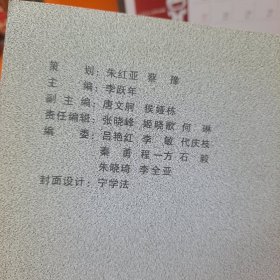 策　　划：朱红亚 蔡　豫
主　　编：李跃年
副 主 编：唐文舸 侯娅栋
责任编辑：张晓峰 姬晓歆 何　琳
编　　委：吕艳红 李　敏 代庆枝
秦　勇 程一方 石　毅
朱晓琦 李全亚
封面设计：宁学法